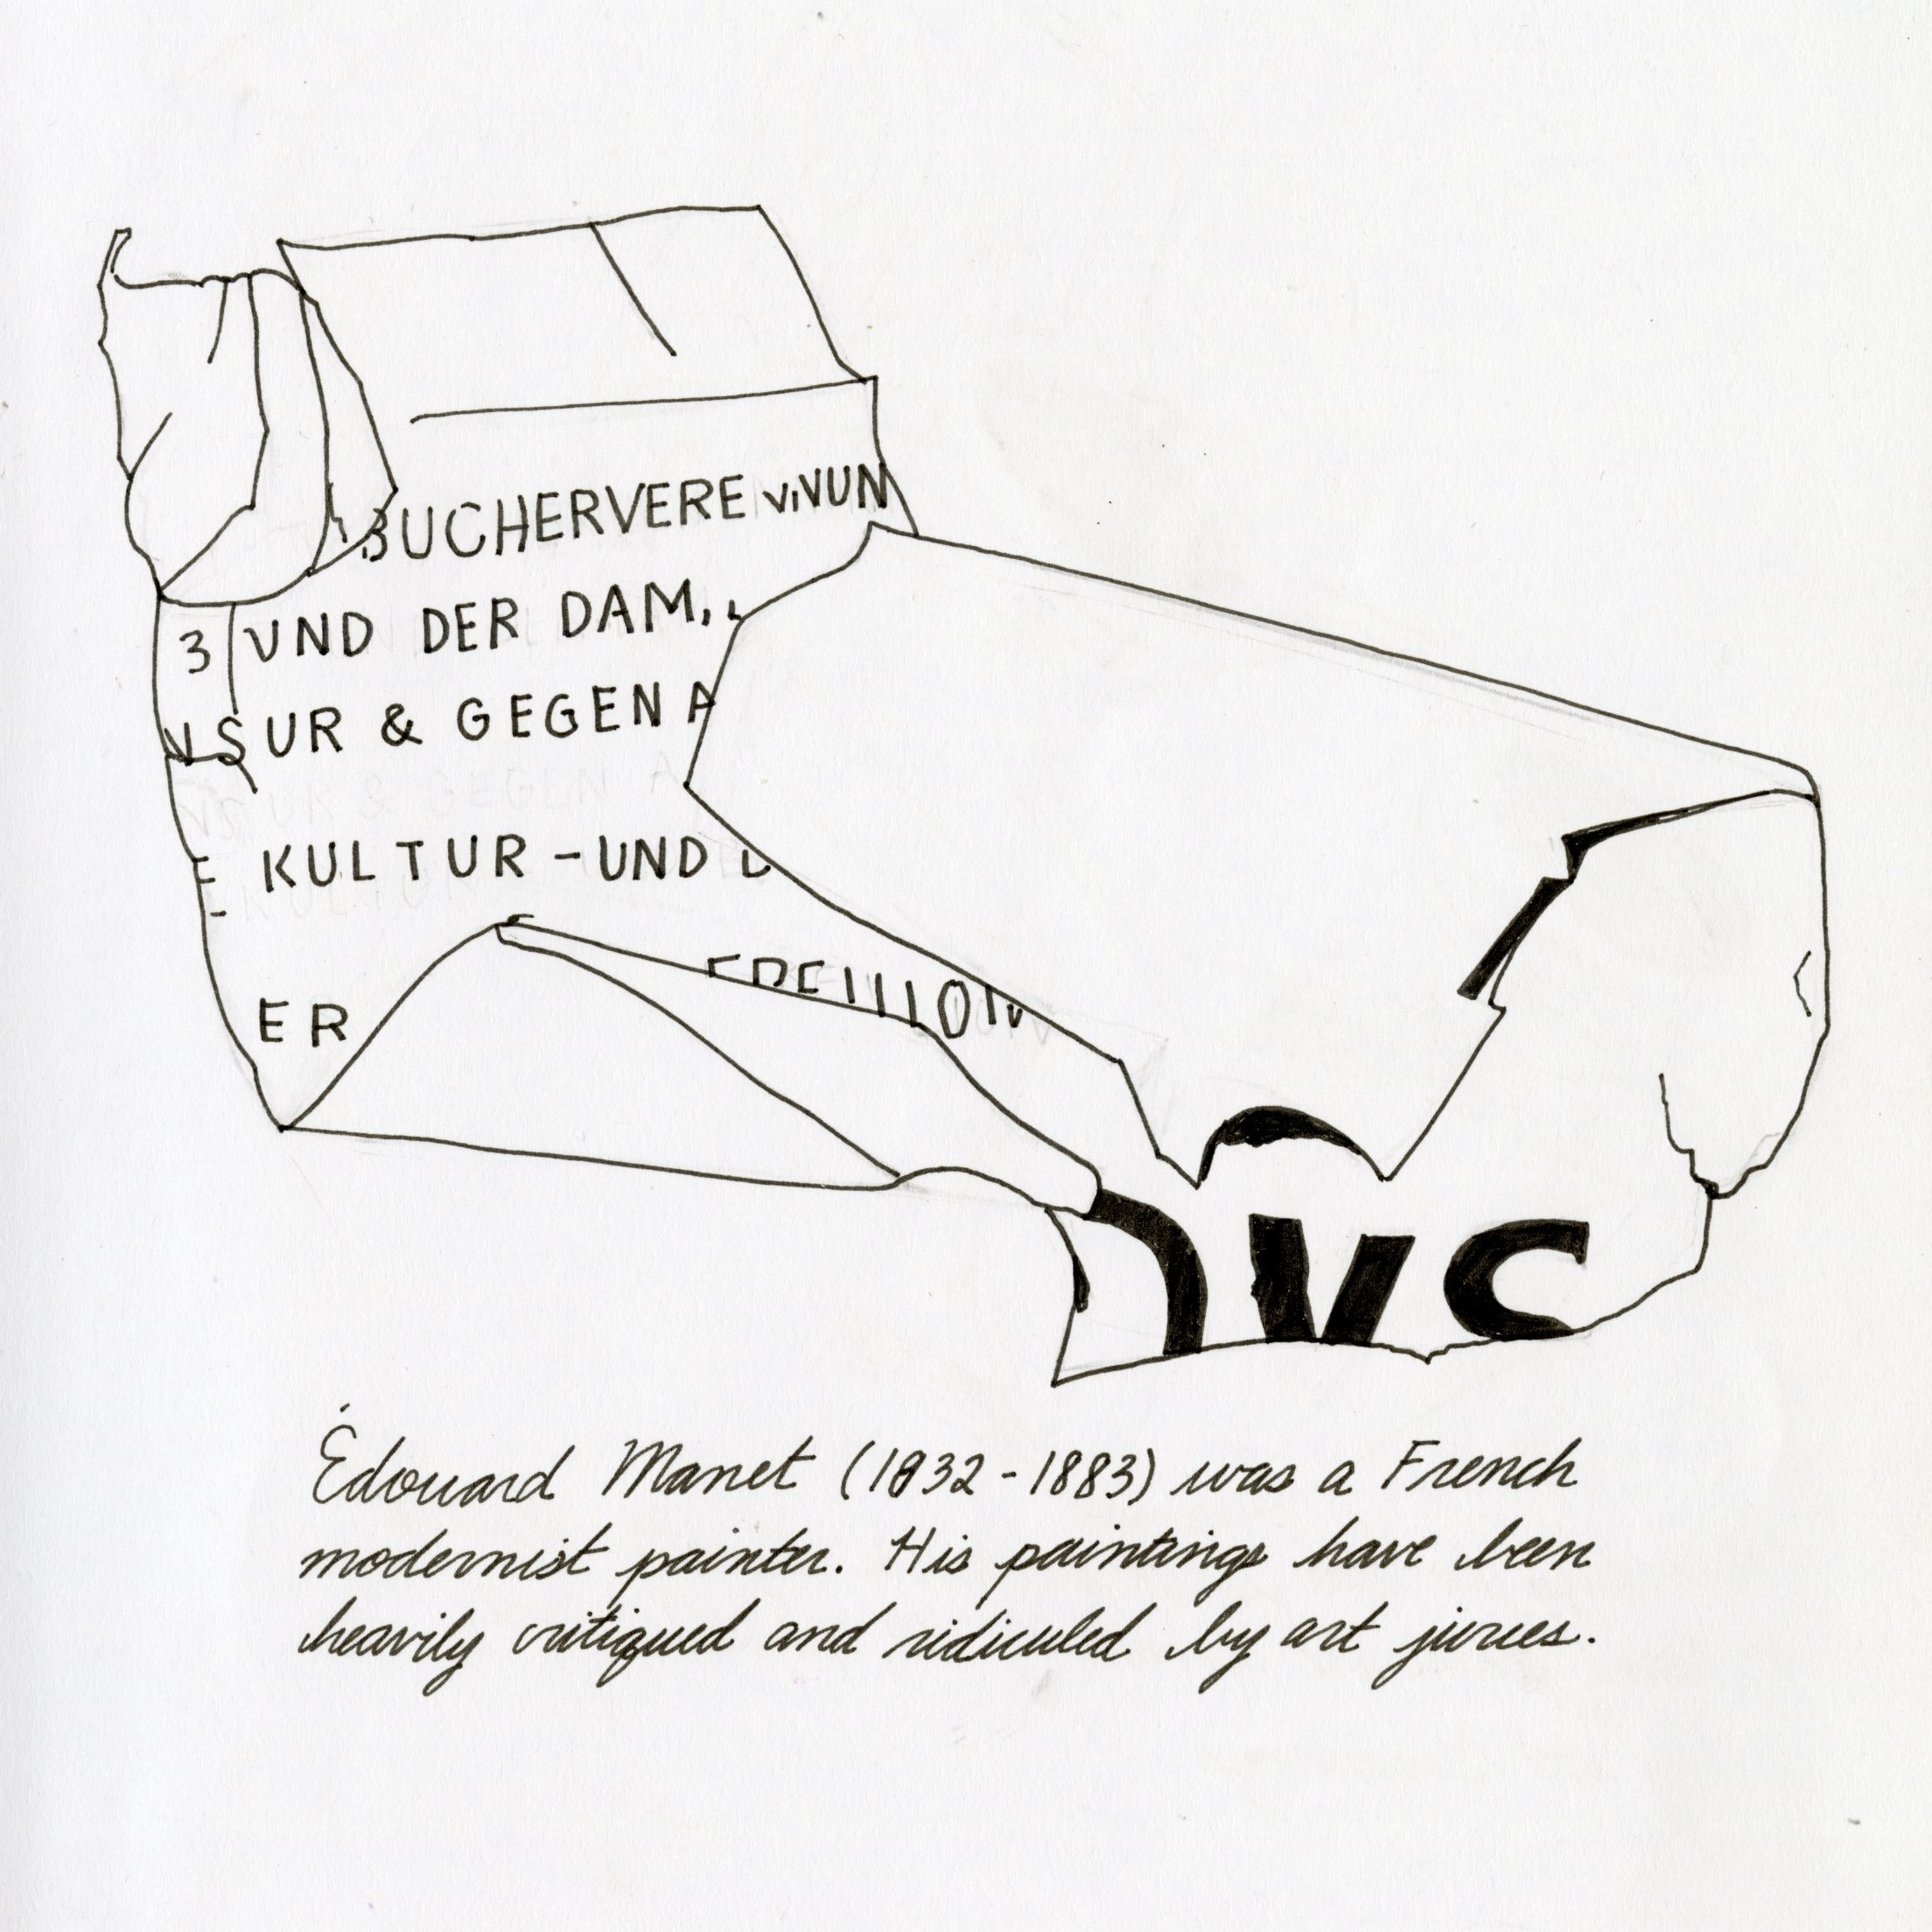 BUCHERVERE
3 UND DER DAM,
NSUR & GEGEN A
E KULTUR-UND D
ER
Édouard Manet (1832-1883) was a French
modernist painter. His paintings have been
heavily critiqued and ridiculed by art juries.